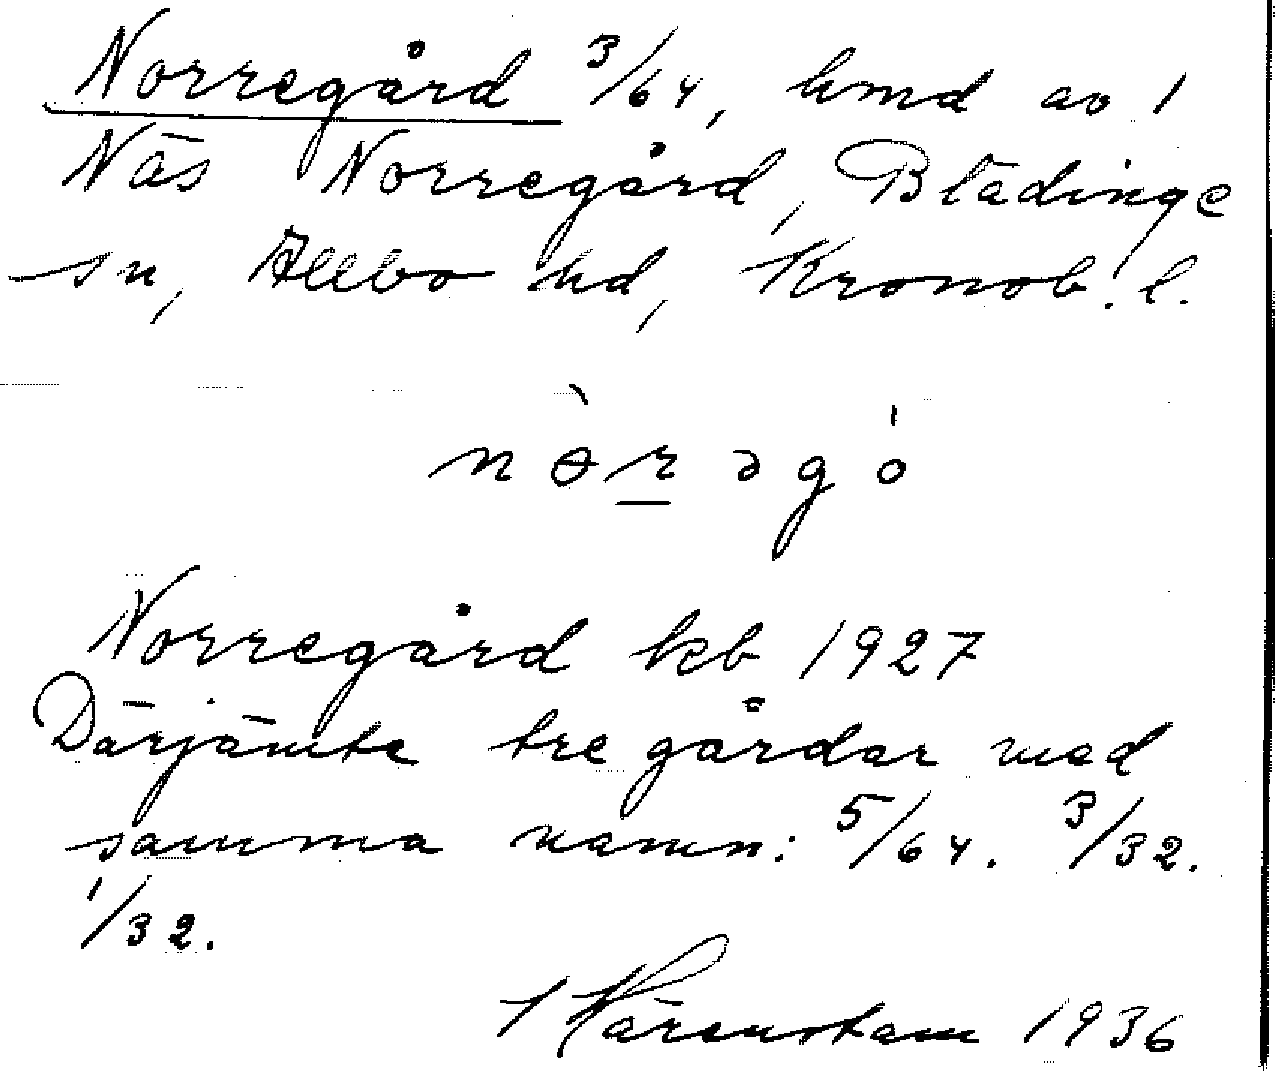 Norregård 3/64, hmd av 1
Näs Norregård, Blädinge
sn, Allbo hd, Kronob. l.
nɵ̀rəgó
Norregård kb 1927
Därjämte tre gårdar med
samma namn: 5/64. 3/32.
1/32.
Särenstam 1936